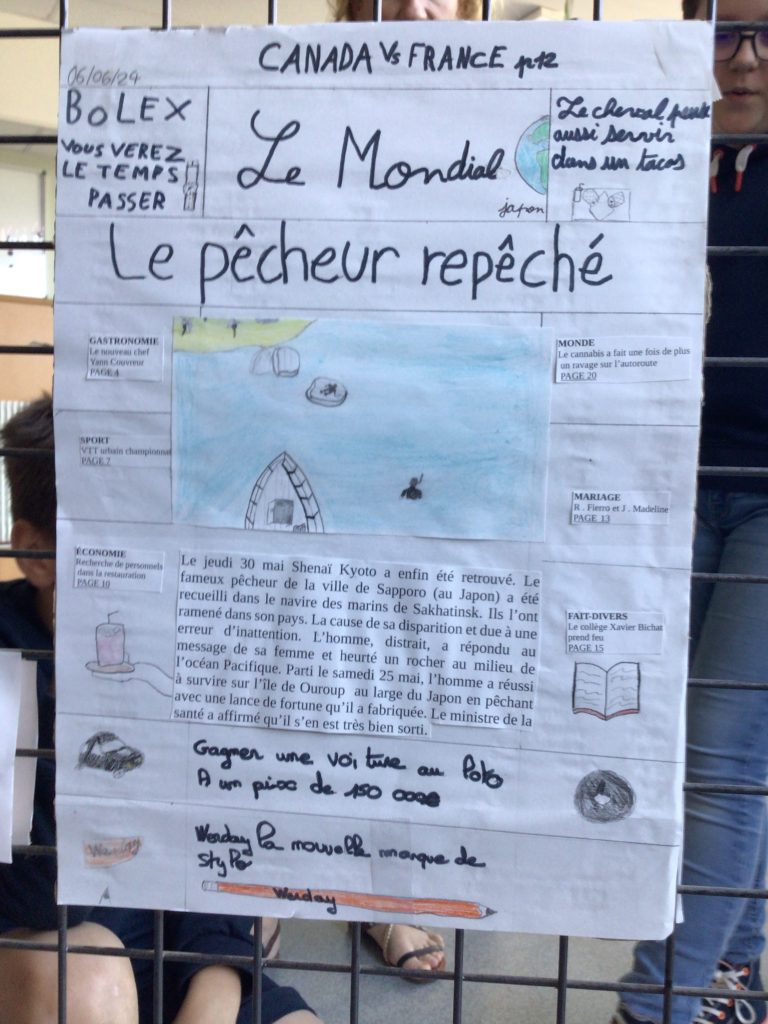 CANADA Vs FRANCE p12
06/06/24
BOLEX
VOUS VEREZ
LE TEMPS
PASSER
Le Mondial
japon
Le cheval peut
aussi servir
dans un tacos
Le pêcheur repêché
GASTRONOMIE
Le nouveau chef
Yann Couvreur
PAGE 4
SPORT
VTT urbain championnat
PAGE 7
ÉCONOMIE
Recherche de personnels
dans la restauration
PAGE 10
MONDE
Le cannabis a fait une fois de plus
un ravage sur l'autoroute
PAGE 20
MARIAGE
R . Fierro et J . Madeline
PAGE 13
FAIT-DIVERS
Le collège Xavier Bichat
prend feu
PAGE 15
Le jeudi 30 mai Shenaï Kyoto a enfin été retrouvé. Le
fameux pêcheur de la ville de Sapporo (au Japon) a été
recueilli dans le navire des marins de Sakhatinsk. Ils l'ont
ramené dans son pays. La cause de sa disparition et due à une
erreur d'inattention. L'homme, distrait, a répondu au
message de sa femme et heurté un rocher au milieu de
l'océan Pacifique. Parti le samedi 25 mai, l'homme a réussi
à survire sur l'île de Ouroup au large du Japon en pêchant
avec une lance de fortune qu'il a fabriquée. Le ministre de la
santé a affirmé qu'il s'en est très bien sorti.
Gagner une voiture au Poko
A un prix de 150 000€
Werday la nouvelle marque de
stylo
Werday
Werday